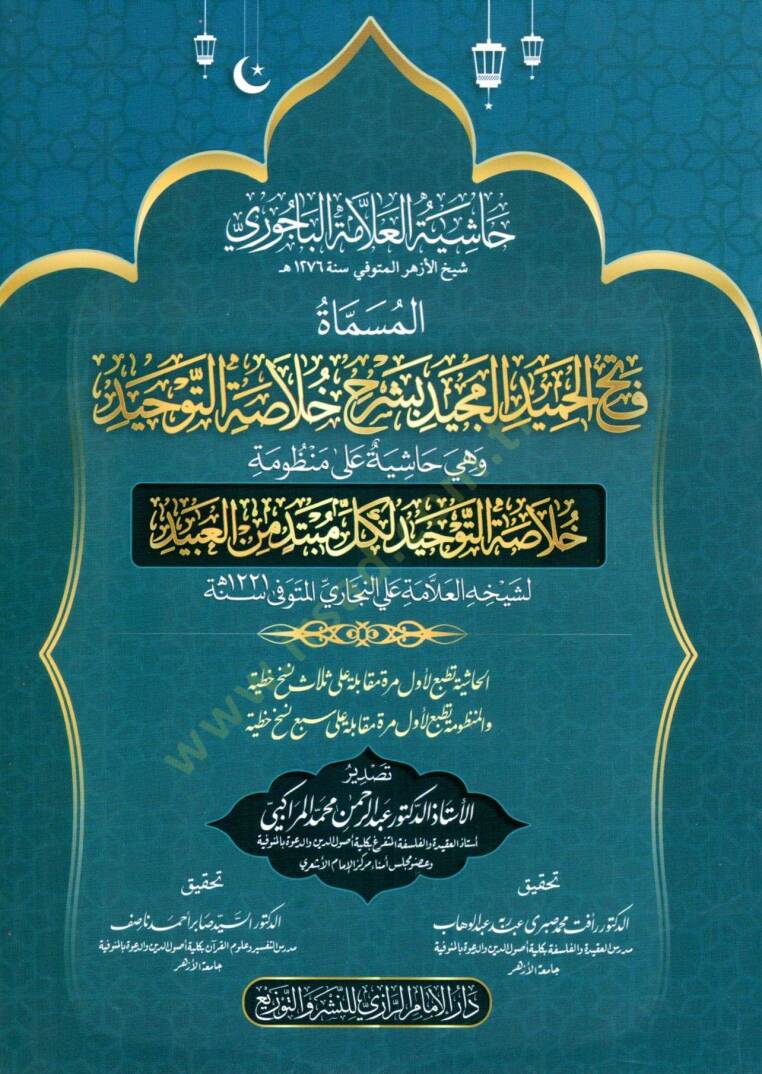 حَاشِيَةُ العَلَّامَةِ البَاجُورِيِّ
شيخ الأزهر المتوفي سنة ١٢٧٦ هـ
المُسَمَّاةُ
فَتْحُ الحَمِيدِ المَجِيدِ بِشَرْحِ خُلَاصَةِ التَّوْحِيدِ
وَهِيَ حَاشِيَةٌ عَلَى مَنْظُومَةِ
خُلَاصَةِ التَّوْحِيدِ لِكُلِّ مُبْتَدٍ مِنَ العَبِيدِ
لشيخه العلامة علي النجاري المتوفى سنة ١٢٢١هـ
الحاشية تطبع لأول مرة مقابلة على ثلاث نسخ خطية
والمنظومة تطبع لأول مرة مقابلة على سبع نسخ خطية
تَصْدِيرُ
الأستاذ الدكتور عبد الرحمن محمد المراكبي
أستاذ العقيدة والفلسفة المتفرغ بكلية أصول الدين والدعوة بالمنوفية
وعضو مجلس أمناء مركز الإمام الأشعري
تحقيق
الدكتور رأفت محمد صبري عبد ربه عبد الوهاب
مدرس العقيدة والفلسفة بكلية أصول الدين والدعوة بالمنوفية
جامعة الأزهر
تحقيق
الدكتور السيد صابر أحمد ناصف
مدرس التفسير وعلوم القرآن بكلية أصول الدين والدعوة بالمنوفية
جامعة الأزهر
دار الإمام الرازي للنشر والتوزيع